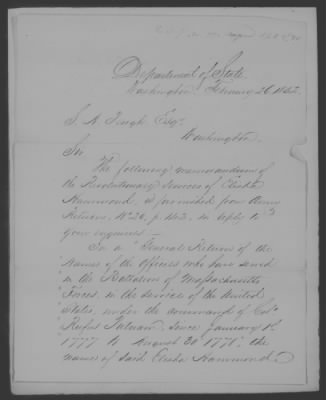 Department of State
Washington February 26, 1842.
S. A. Pugh Esqr.
Washington.
Sir
The following memorandum of
the Revolutionary Services of Elisha
Hammond, is furnished from Army
Returns, No 26, p. 142, in reply to
your enquiries —
In a "General Return of the
"Names of the Officers who have served
"in the Battalion of Massachusetts
"Forces, in the service of the United
"States, under the command of Colo
"Rufus Putnam since January 1st
"1777 to August 30 1778," the
name of said Elisha Hammond